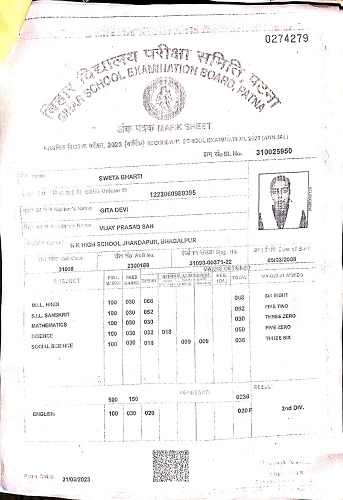 0274279
बिहार विद्यालय परीक्षा समिति, पटना
BIHAR SCHOOL EXAMINATION BOARD, PATNA
अंक पत्रक MARK SHEET
माध्यमिक विद्यालय परीक्षा, 2023 (वार्षिक) SECONDARY SCHOOL EXAMINATION, 2023 (ANNUAL)
क्रम सं० SL No. 310025950
SWETA BHARTI
1222060980395
Mother's Name GITA DEVI
Father's Name VIJAY PRASAD SAH
N K HIGH SCHOOL JHANDAPUR, BHAGALPUR
Roll No. Reg. No. Date of Birth
31008 2300188 31008-00371-22 05/03/2008
SUBJECT FULL MARKS PASS MARKS THEORY TOTAL MARKS IN WORDS
M.I.L. HINDI 100 030 068 068 SIX EIGHT
S.I.L. SANSKRIT 100 030 052 052 FIVE TWO
MATHEMATICS 100 030 030 030 THREE ZERO
SCIENCE 100 030 032 018 050 FIVE ZERO
SOCIAL SCIENCE 100 030 018 009 009 036 THREE SIX
500 150 AGGREGATE 0236 RESULT
ENGLISH 100 030 020 020 F 2nd DIV.
31/03/2023